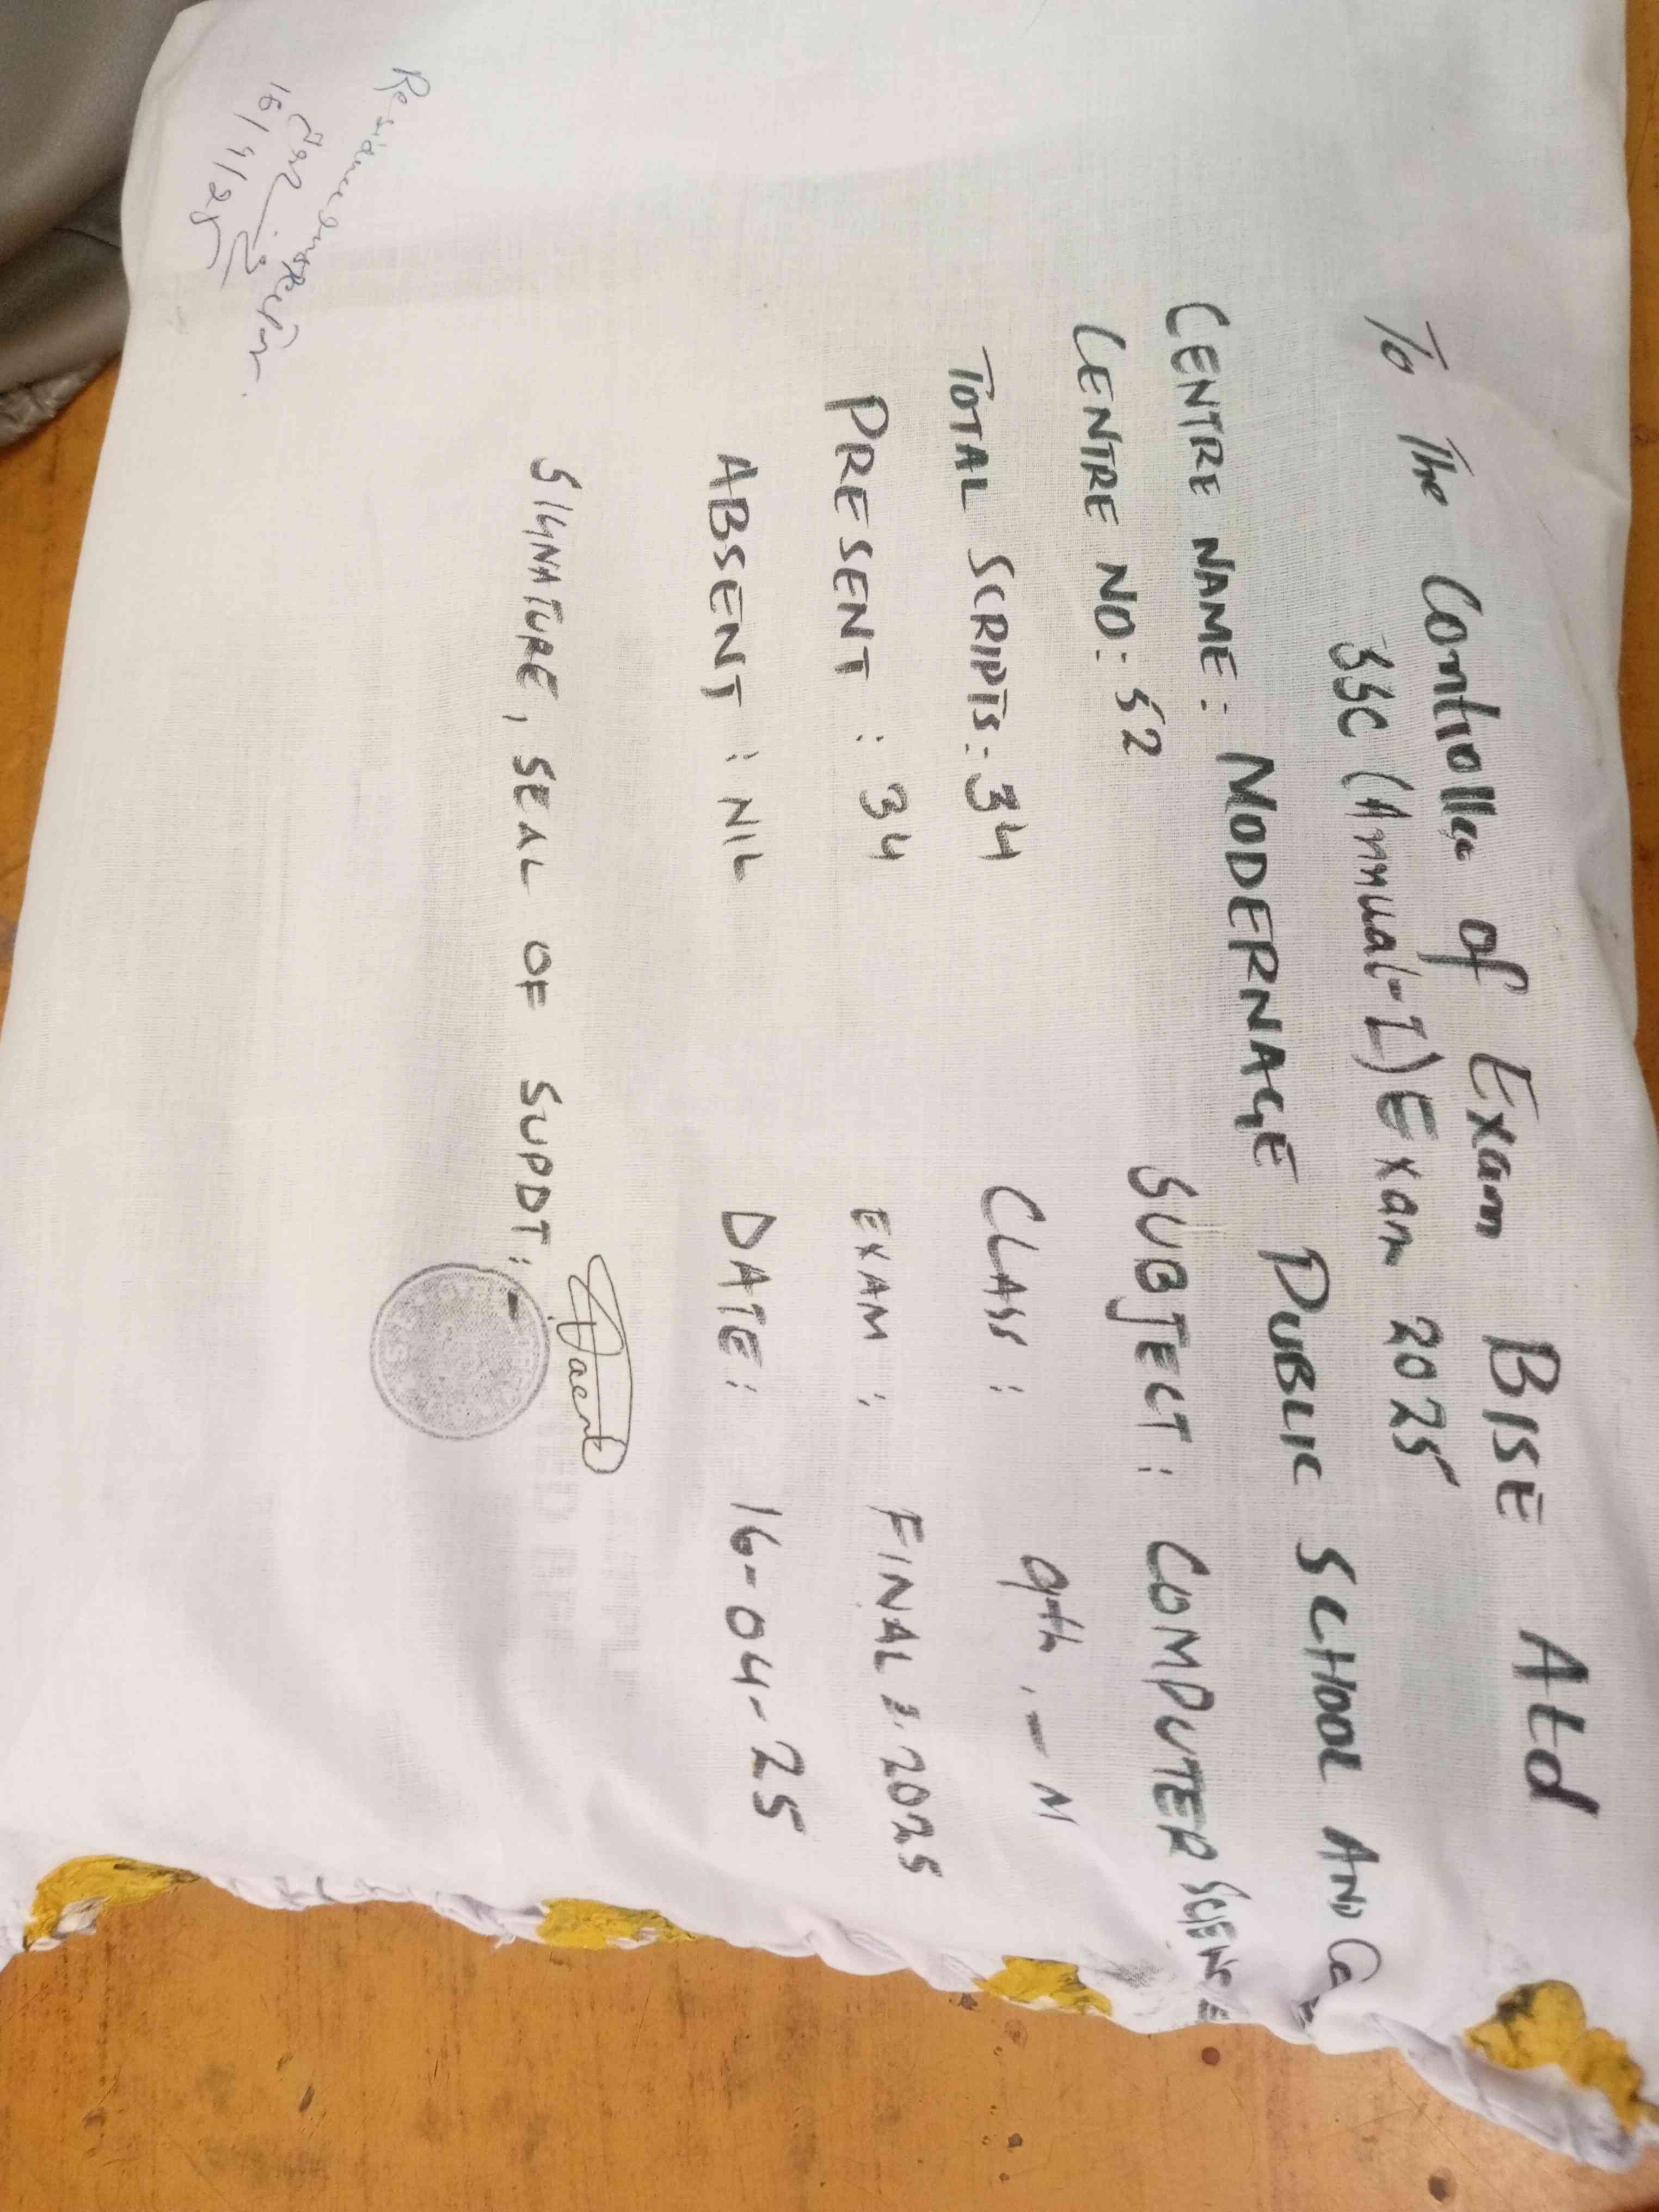 To The Controller of Exam BISE Atd
SSC (Annual-I) Exam 2025
CENTRE NAME: MODERNAGE PUBLIC SCHOOL AND
CENTRE NO: 52 SUBJECT: COMPUTER SCIENCE
TOTAL SCRIPTS: 34 CLASS: 9th - M
PRESENT: 34 EXAM: FINAL 2025
ABSENT: NIL DATE: 16-04-25
SIGNATURE, SEAL OF SUPDT:
16/4/25